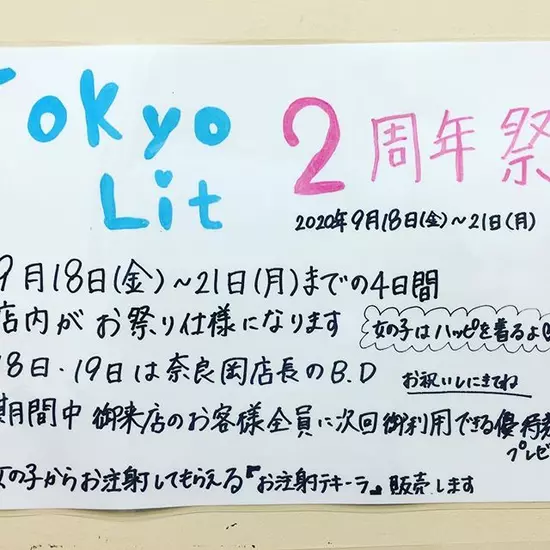 Tokyo
Lit
2周年祭
2020年9月18日(金)～21日(月)
9月18日(金)～21日(月)までの4日間
店内がお祭り仕様になります
女の子はハッピを着るよ
18日・19日は奈良岡店長のB.D
お祝いしにきてね
期間中 御来店のお客様全員に次回御利用できる優待券
プレゼ
女の子からお注射してもらえる『お注射テキーラ』販売します